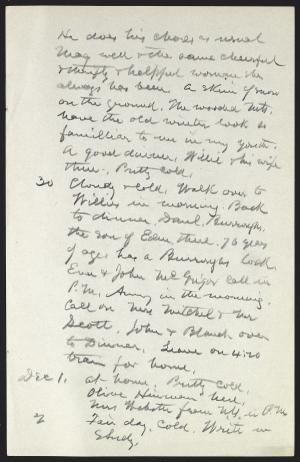 He does his chores as usual
Mag well & the same cheerful
& thrifty & helpful woman she
always has been. A skim of snow
on the ground. The wooded Mts.
have the old winter look so
familliar to me in my youth.
A good dinner. Willie & his wife
there. Pretty cold.
30 Cloudy & cold. Walk over to
Willies in morning. Back
to dinner. Burroughs,
the son of Eden there. 76 years
of age: has a Burroughs look.
& John McGrigor call in
P.M. in the morning.
Call on Mrs Mitchel & Mr
Scott. John & Blanch over
to Dinner. Leave on 4:20
train for home.
Dec 1. At home. Pretty cold.
Olive here,
Mrs Webster from in P.M.
2 Fair day. Cold. Write in
Study.